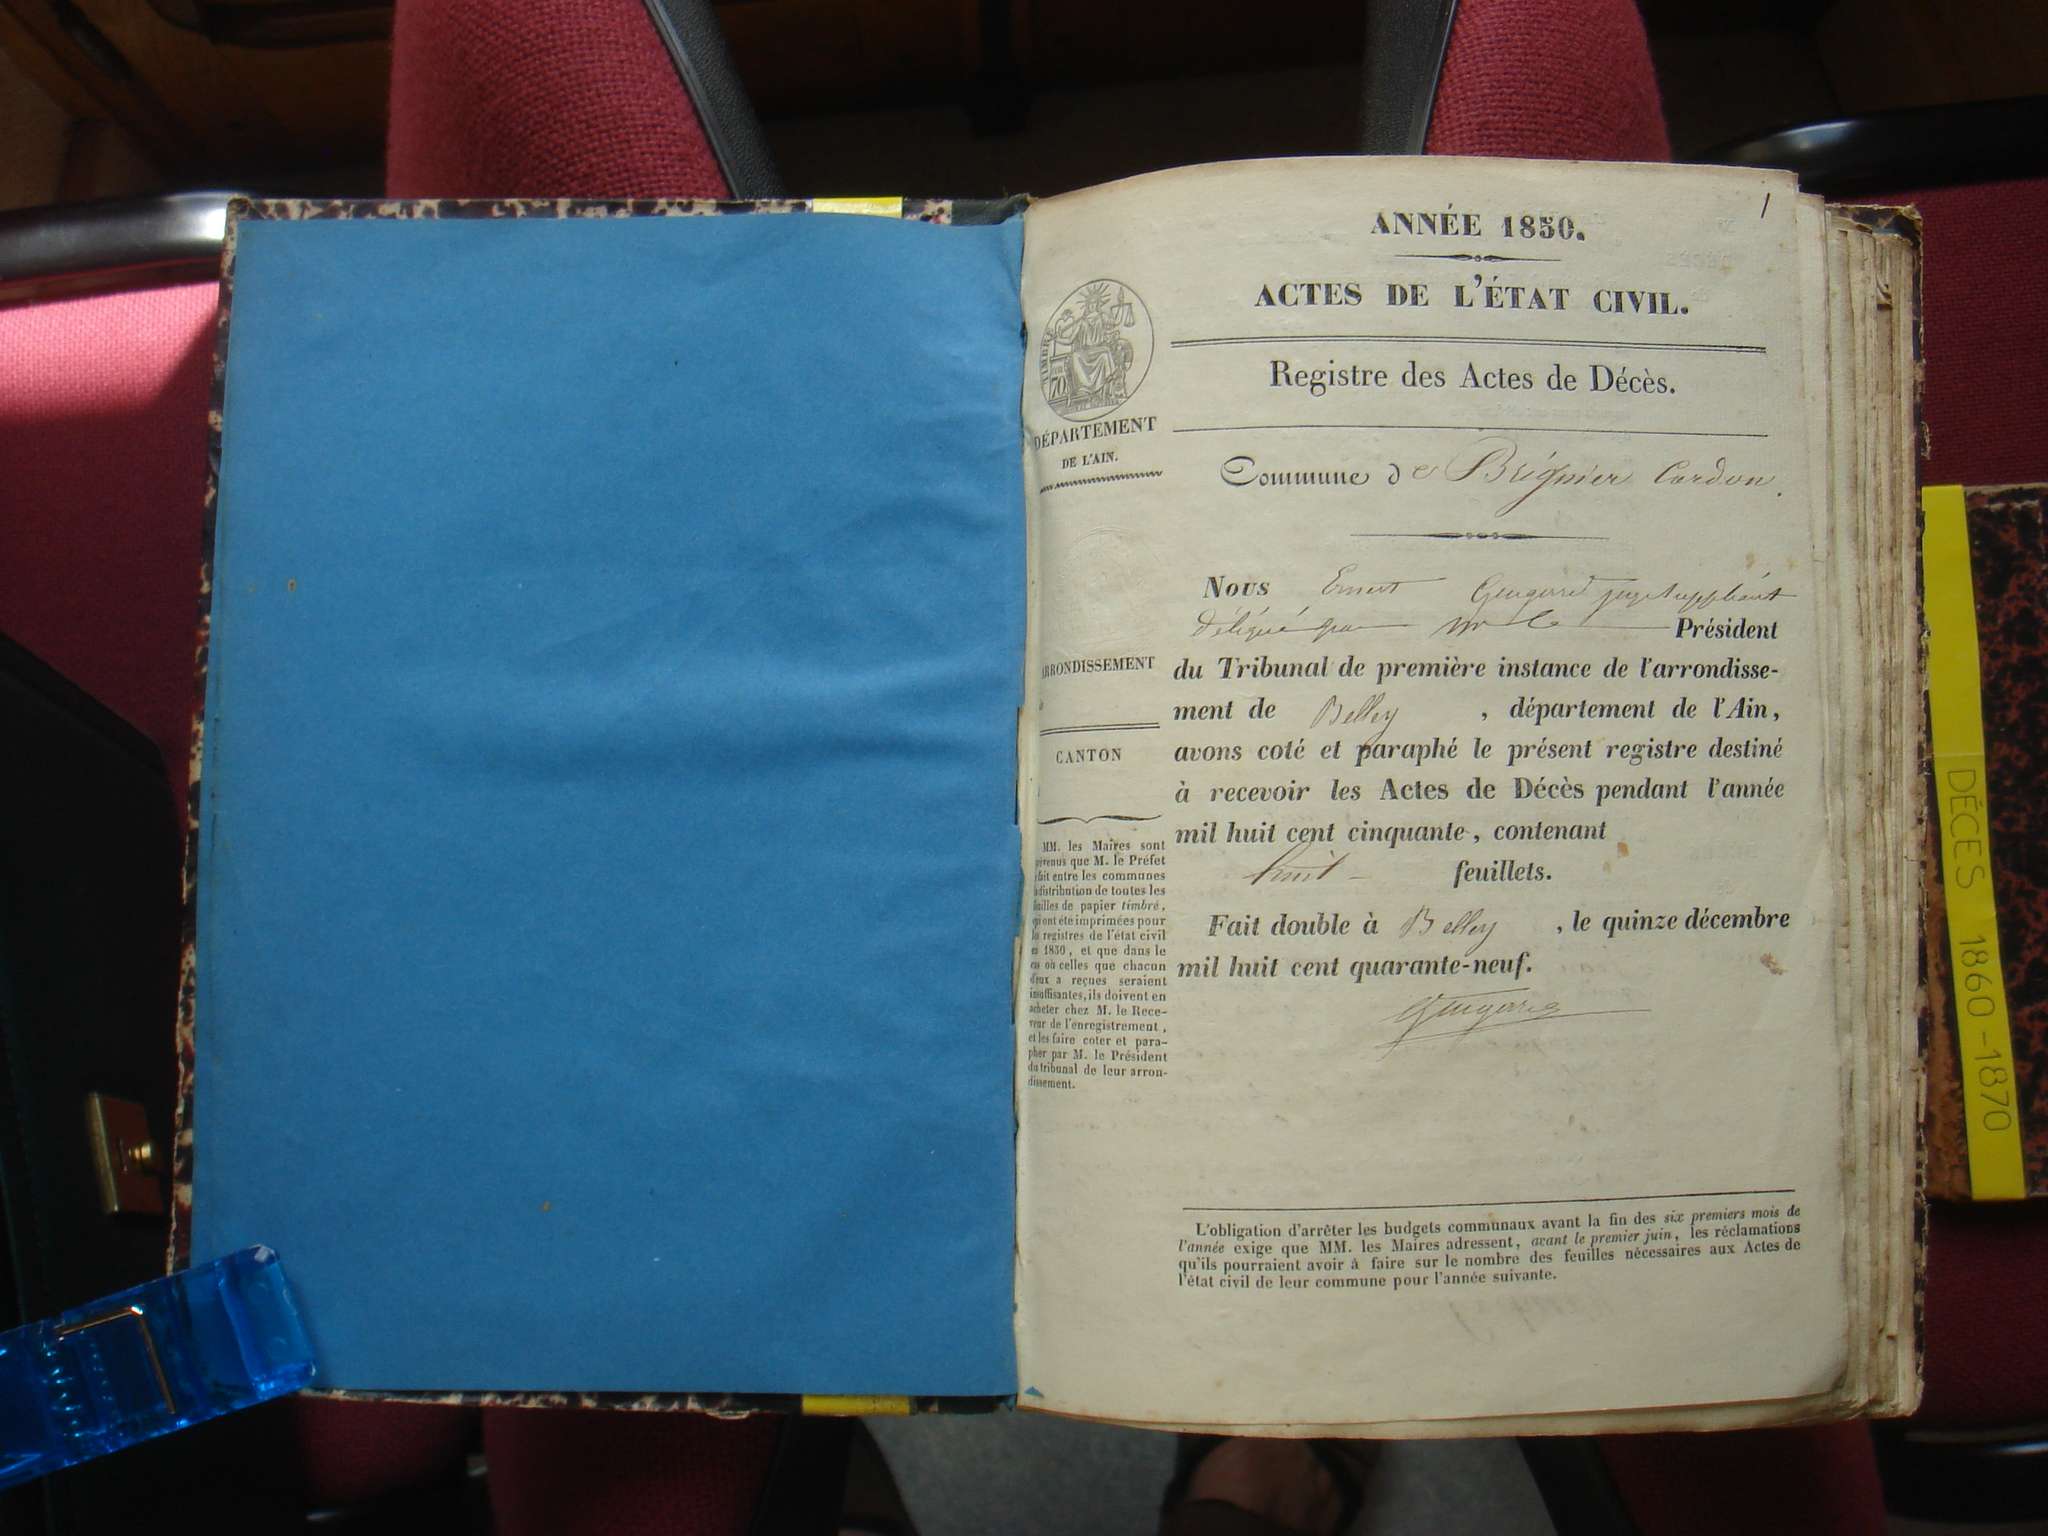 1
ANNÉE 1850.
ACTES DE L'ÉTAT CIVIL.
Registre des Actes de Décès.
TIMBRE
70
DÉPARTEMENT
DE L'AIN.
Commune de Brégnier Cordon.
Nous Ernest juge suppléant
délégué par Mr le Président
du Tribunal de première instance de l'arrondisse-
ment de Belley, département de l'Ain,
avons coté et paraphé le présent registre destiné
à recevoir les Actes de Décès pendant l'année
mil huit cent cinquante, contenant
huit feuillets.
Fait double à Belley, le quinze décembre
mil huit cent quarante-neuf.
ARRONDISSEMENT
CANTON
MM. les Maires sont
prévenus que M. le Préfet
fait entre les communes
distribution de toutes les
feuilles de papier timbré,
qui ont été imprimées pour
les registres de l'état civil
en 1850, et que dans le
cas où celles que chacun
d'eux a reçues seraient
insuffisantes, ils doivent en
acheter chez M. le Rece-
veur de l'enregistrement,
et les faire coter et para-
pher par M. le Président
du tribunal de leur arron-
dissement.
L'obligation d'arrêter les budgets communaux avant la fin des six premiers mois de
l'année exige que MM. les Maires adressent, avant le premier juin, les réclamations
qu'ils pourraient avoir à faire sur le nombre des feuilles nécessaires aux Actes de
l'état civil de leur commune pour l'année suivante.
DÉCÈS 1860-1870